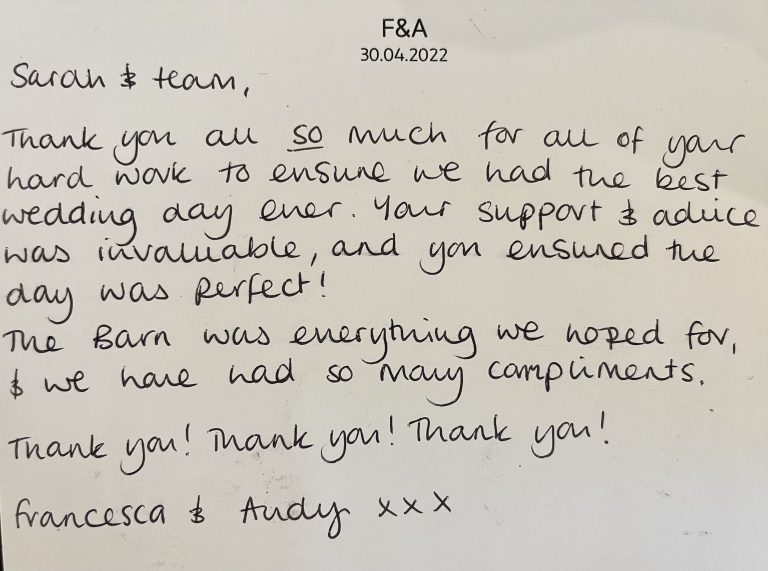 F&A
30.04.2022
Sarah & team,
Thank you all so much for all of your
hard work to ensure we had the best
wedding day ever. Your support & advice
was invaluable, and you ensured the
day was perfect!
The Barn was everything we hoped for,
& we have had so many compliments.
Thank you! Thank you! Thank you!
Francesca & Andy xxx